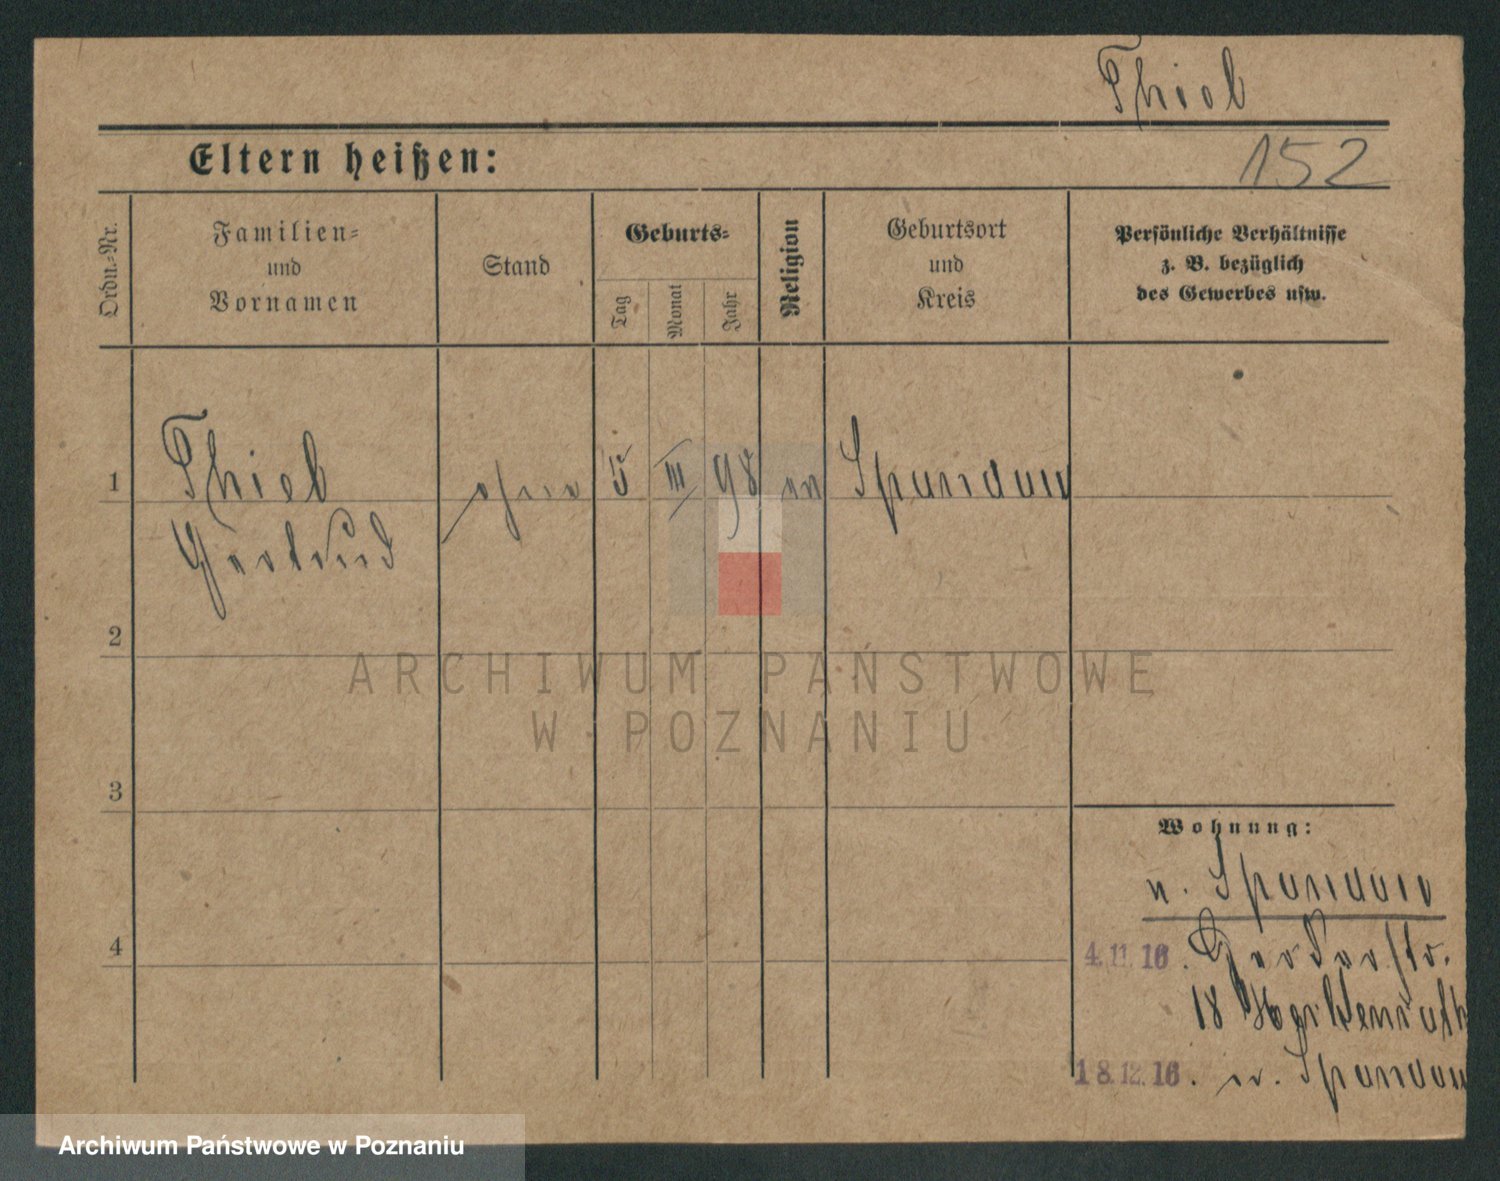 Thiel
152
Eltern heißen:
Ordn.-Nr.
Familien-
und
Vornamen
Stand
Geburts-
Tag
Monat
Jahr
Religion
Geburtsort
und
Kreis
Persönliche Verhältnisse
z. B. bezüglich
des Gewerbes usw.
1
Thiel
ohne
5
III
98
ev
Spandau
Gertrud
2
ARCHIWUM PAŃSTWOWE
W POZNANIU
3
Wohnung:
n. Spandau
4
4.11.16.
18
18.12.16. n. Spandau
Archiwum Państwowe w Poznaniu